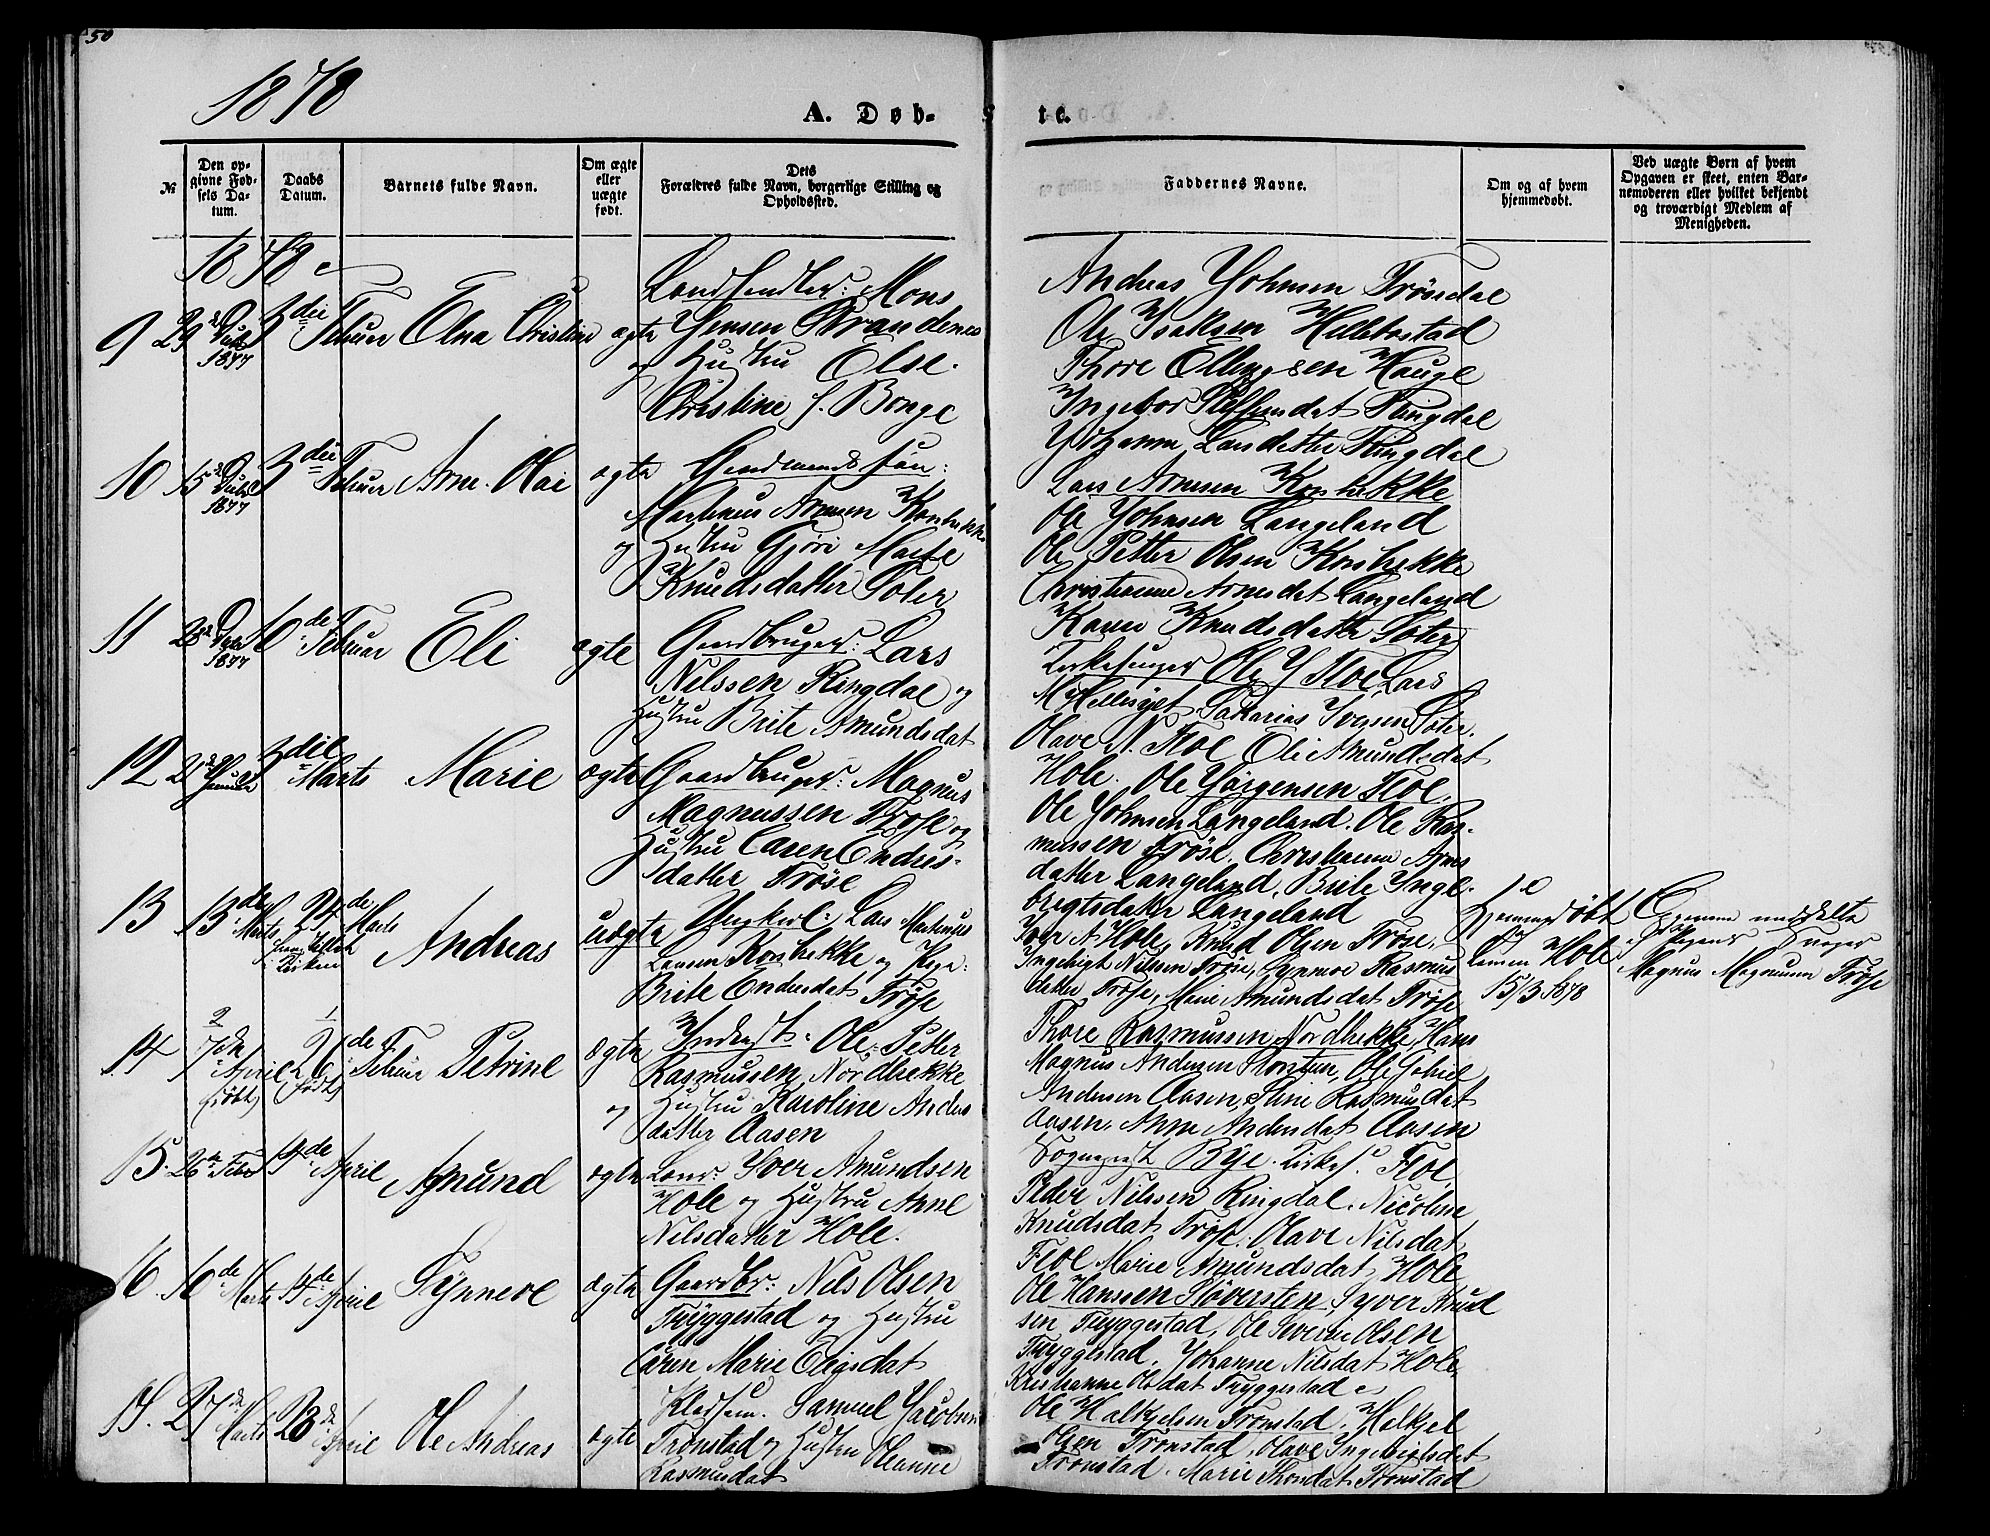 50
1878
A. Døb-
te.
№
Den op-
givne Fød-
sels Da-
tum.
Daabs
Datum.
Barnets fulde Navn.
Om ægte
eller
uægte
født.
Dets
Forældres fulde Navn, borgerlige Stilling og
Opholdssted.
Faddernes Navne.
Om og af hvem
hjemmedøbt.
Ved uægte Børn af hvem
Opgaven er skeet, enten Bar-
nemoderen eller hvilket bekjendt
og troværdigt Medlem af
Menigheden.
1878
9 29 1877 3die Februar Elna Christine ægte
Landhandler: Mons
Jensen Strandenes
og Hustru Else
Christine f. Bonge
Andreas Johnsen Frøsedal
Ole Isaksen Hellebostad
Thore Ellingsen Hauge
Ringdal
Larsdatter Ringdal
10 15 1877 3die Februar Arne Olai ægte
Martinus Arnesen Korsbekke
og Hustru Gjøri Marte
Knudsdatter Soter
Lars Arnesen Korsbekke
Ole Johnsen Langeland
Ole Petter Olsen Korsbekke
Christianne Arnesdat Langeland
Karen Knudsdatter Soter
11 1877 10de Februar Eli ægte
Gaardbruger: Lars
Nilssen Ringdal og
Hustru Brite Amundsdat
Kirkesanger Ole J Floe Lars
Sakarias Iversen Soter
Olave N. Floe Eli Amundsdat
Hole. Ole Jørgensen Floe
12 Januar 3die Marts Marie ægte
Gaardbruger: Magnus
Magnussen Frøse og
Hustru Caren Endres-
datter Frøse
Ole Johnsen Langeland. Ole Ras-
mussen Frøse. Christianne Arnes
datter Langeland, Brite Inge-
brigtsdater Langeland
13 13de Marts 24de Marts Andreas uægte
Ungkarl: Lars Martinus
Larsen Korsbekke og Pige:
Brite Endresdat Frøse
Iver A Hole, Knud Olsen Frøse,
Ingebrigt Nilssen Frøse, Synnove Rasmus
datter Frøse, Marie Amundsdat Frøse
Hjemmedøbt
Hole
15/3 1878
Magnus Magnussen Frøse
14 7de April (døbt) 26de Februar (født) Petrine ægte
Inderst: Ole Petter
Rasmussen Nordbekke
og Hustru Karoline Anders
datter Aasen
Thore Rasmussen Nordbekke, Hans
Magnus Andersen Ole Gabriel
Andersen Aasen, Rasmusdat
Aasen, Anne Andersdat Aasen
15. 26de Febr 14de April Amund ægte
Iver Amundsen
Hole og Hustru Anne
Nilsdatter Hole.
Sognepræst Bye. Kirkes. Floe,
Peder Nilssen Ringdal. Nicoline
Knudsdat Frøse. Olave Nilsdat
Floe Marie Amundsdat Hole
16 10de Marts 14de April Synneve ægte
Gaardbr: Nils Olsen
Tryggestad og Hustru
Caren Marie Eligsdat
Ole Hanssen Støversten, Syver Knud
sen Tryggestad, Ole Severin Olsen
Tryggestad, Johanne Nilsdat Hole,
Kristianne Olsdat Tryggestad
27de Marts 28de April Ole Andreas ægte
Samuel Jacobsen
Tronstad og Hustru Oleanne
Rasmusdat
Ole Halkjelsen Tronstad, Halkjel
Olsen Tronstad, Olave Ingebrigtsdat
Tronstad. Marie Tronstad